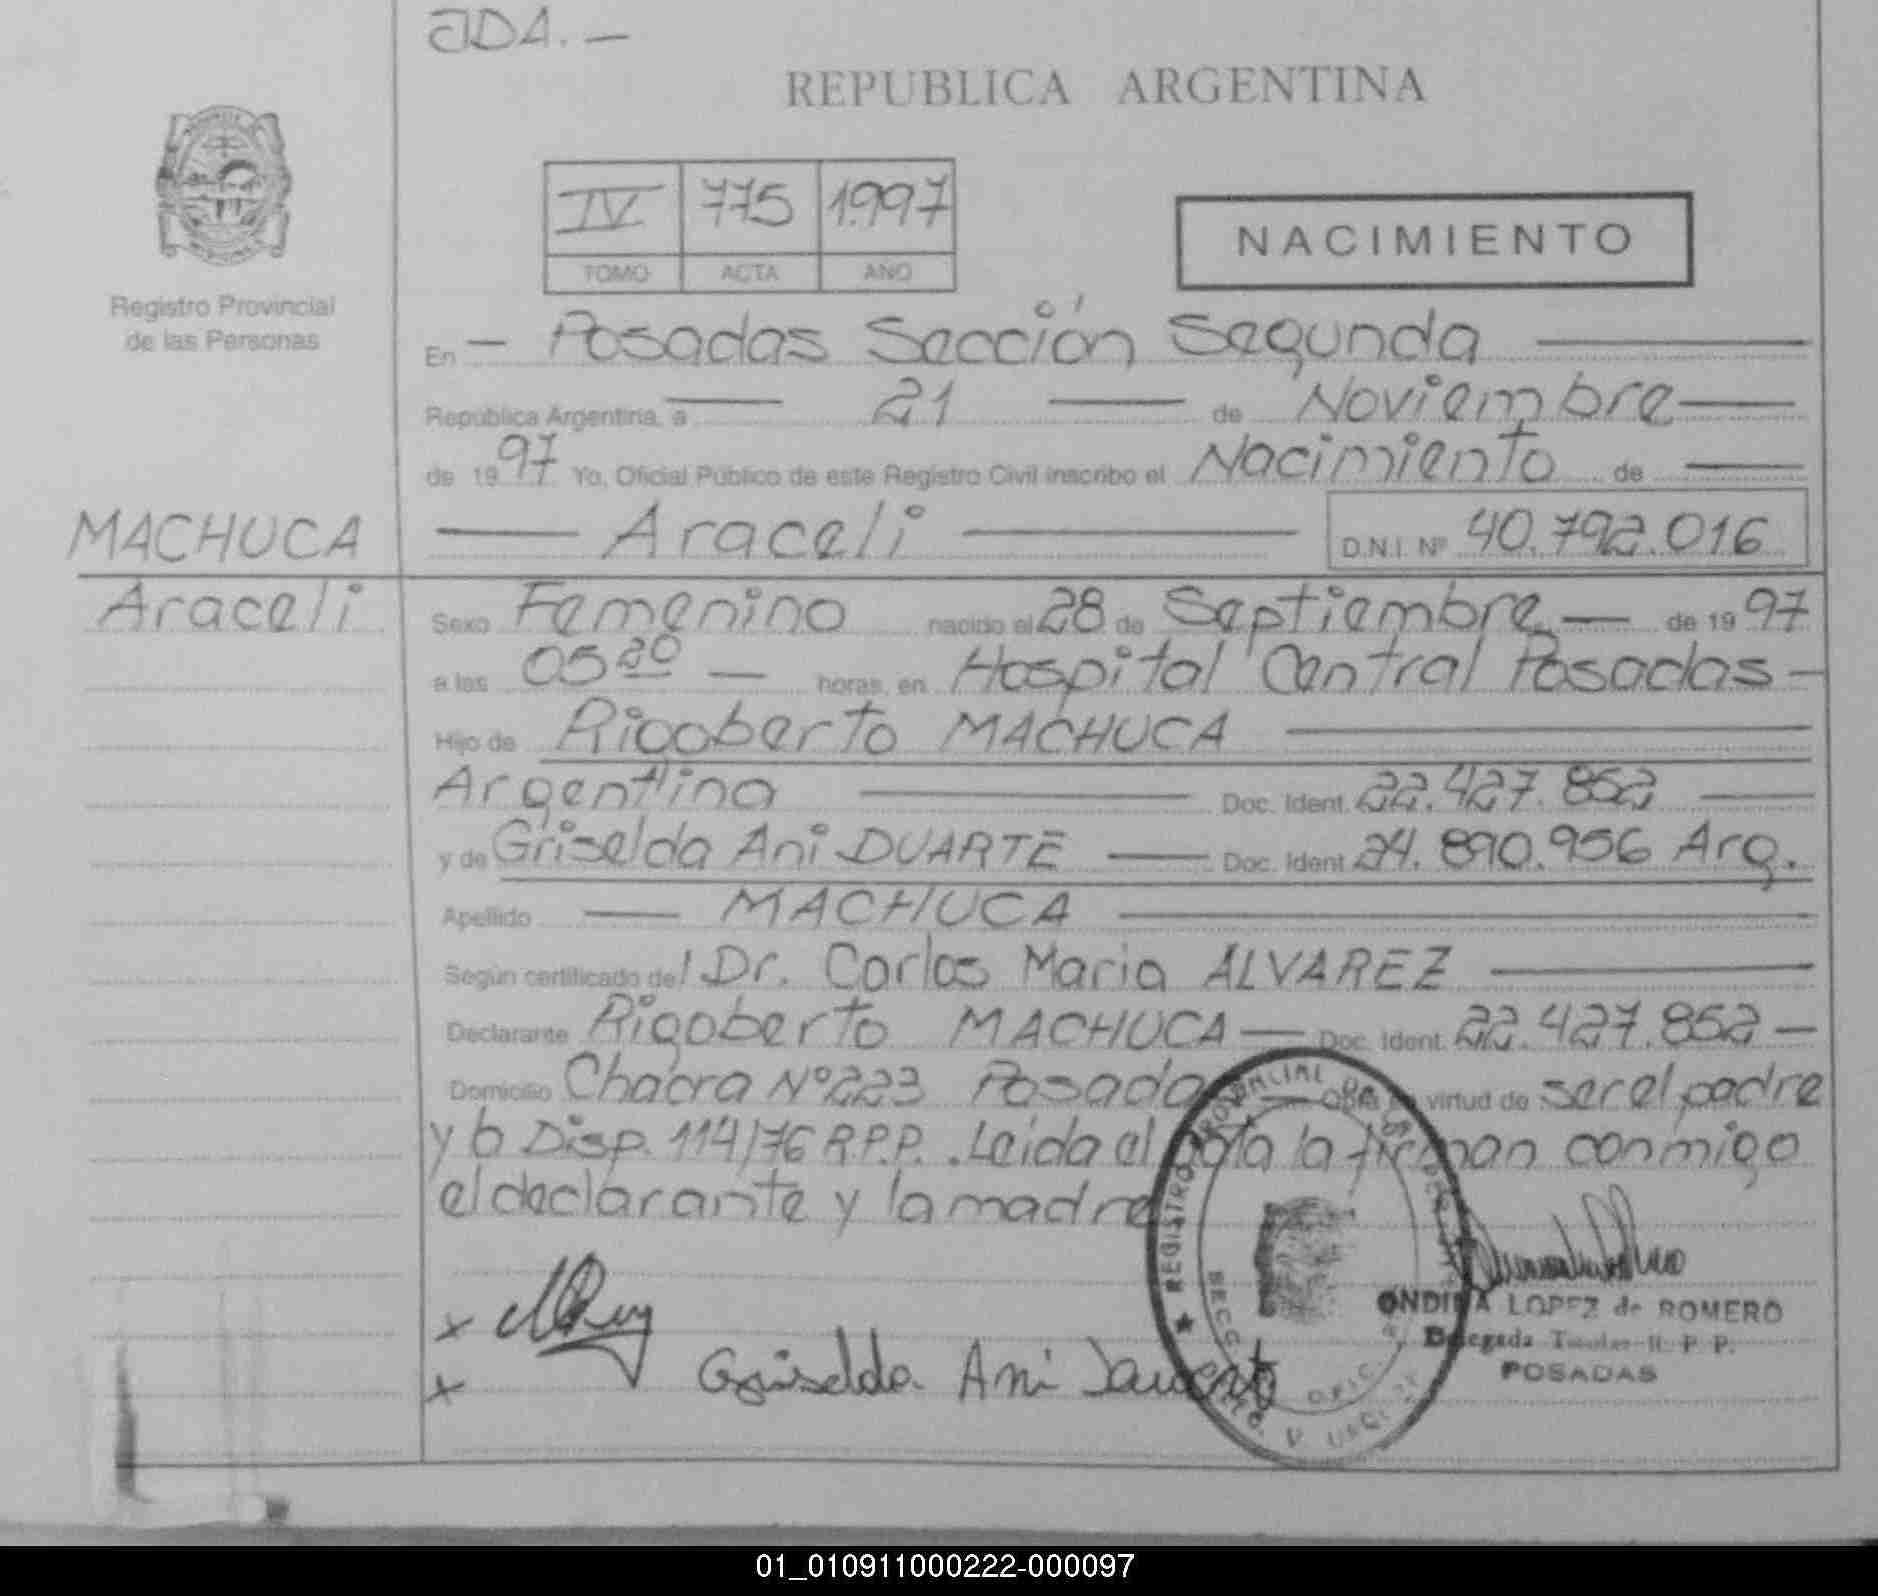 JDA. —
REPUBLICA ARGENTINA
IV 775 1.997
TOMO ACTA AÑO
NACIMIENTO
Registro Provincial
de las Personas
En — Posadas Sección Segunda
República Argentina, a 21 de Noviembre
de 1997 Yo, Oficial Público de este Registro Civil inscribo el Nacimiento de
MACHUCA
Araceli
Araceli D.N.I. Nº 40.792.016
Sexo Femenino nacido el 28 de Septiembre — de 1997
a las 05 20 — horas, en Hospital Central Posadas —
Hijo de Rigoberto MACHUCA
Argentino Doc. Ident. 22.427.852
y de Griselda Ani DUARTE — Doc. Ident. 24.890.956 Arg.
Apellido — MACHUCA
Según certificado del Dr. Carlos Maria ALVAREZ
Declarante Rigoberto MACHUCA — Doc. Ident. 22.427.852 —
Domicilio Chacra Nº 223 Posadas — Obra en virtud de ser el padre
y b Disp. 114/76 R.P.P. . Leida el acta la firman conmigo
el declarante y la madre
x
x Griselda Ani Duarte
REGISTRO PROVINCIAL DE LAS PERSONAS
ONDINA LOPEZ de ROMERO
Delegada Titular R. P. P.
POSADAS
01_010911000222-000097